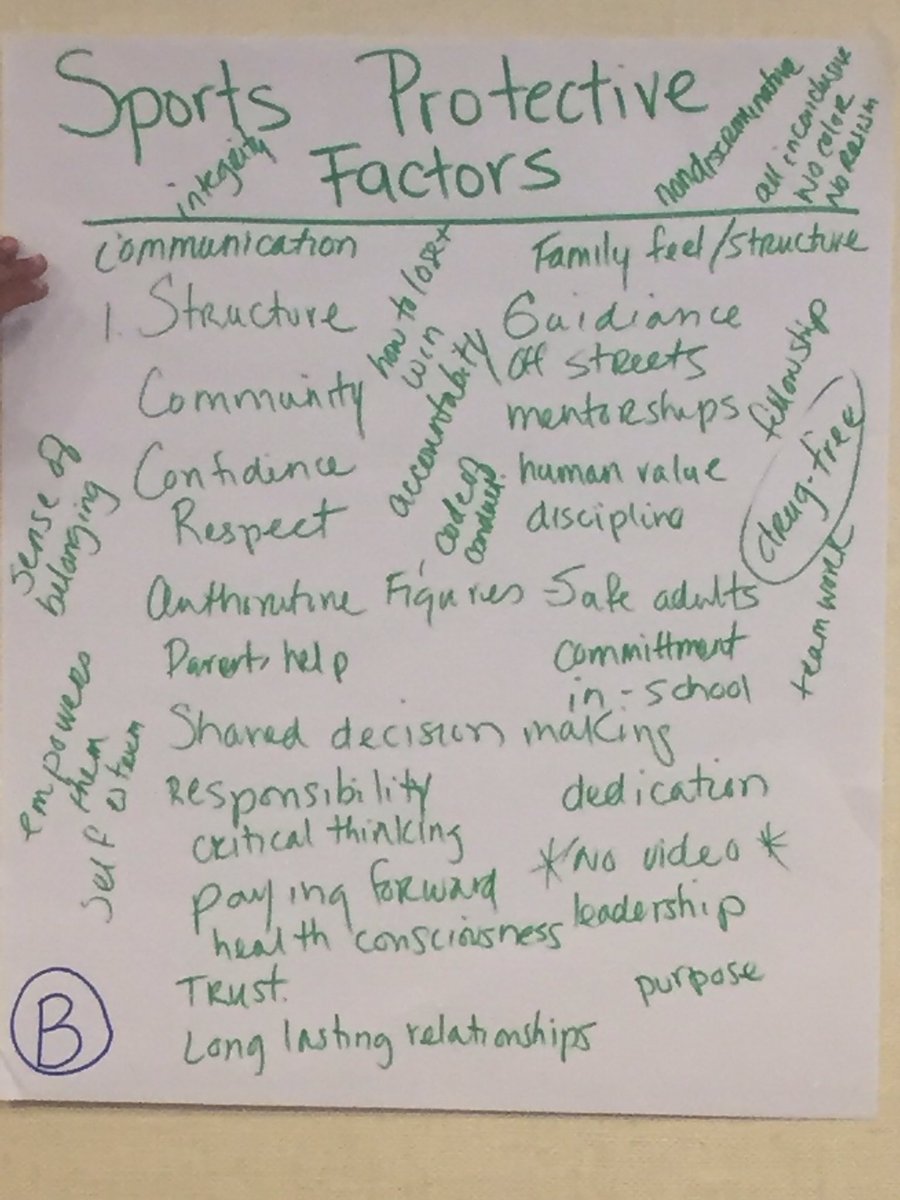 Sports Protective
Factors
integrity
nondiscriminative
all inconclusive
No color
No Rasism
Communication
Family feel/structure
1. Structure
how to lose +
win
Guidiance
Community
accountability
off streets
mentorships
fellowship
Confidence
code of
conduct
human value
drug-free
Respect
discipline
sense of
belonging
Figures
Safe adults
teamwork
Parents help
committment
in-school
Shared decision making
empowers
them
self esteem
Responsibility
dedication
critical thinking
*No video*
paying forward
leadership
health consciousness
Trust.
purpose
Long lasting relationships
B